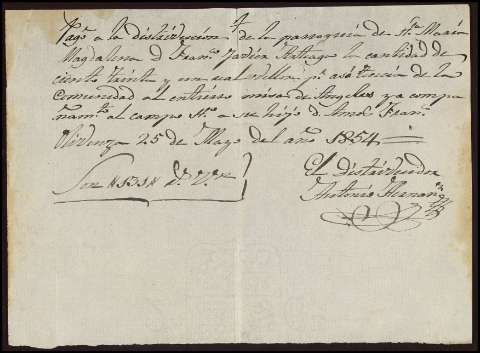 Pagó a la distribucion de la parroquia de Sta. Maria
Magdalena D. Franco. Javier Artiaga la cantidad de
ciento treinta y un real vellon pr. asistencia de la
Comunidad al entierro misa de Angeles y acompa
namto. al campo Sto. a su hijo D. Anto. Fran.co
Olivenza 25 de Mayo del año 1854
El Distribuidor
Son #131# Rs. Vn.
Antonio Hernanz